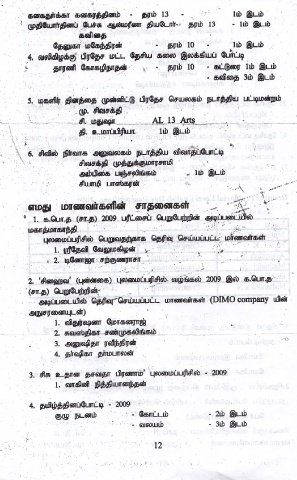 கனகதுர்க்கா கனகரத்தினம் - தரம் 13 1ம் இடம்
முதியோர்தினப் பேச்சு ஆன்மரீனா தியடோர் - தரம் 13 - 1ம் இடம்
கவிதை
தேனுகா மகேந்திரன் - தரம் 10 - 1ம் இடம்
4. வலிகிழக்கு பிரதேச மட்ட தேசிய கலை இலக்கியப் போட்டி
தாரணி கோகழிநாதன் - தரம் 10 - கட்டுரை 1ம் இடம்
- கவிதை 3ம் இடம்
5. மகளிர் தினத்தை முன்னிட்டு பிரதேச செயலகம் நடாத்திய பட்டிமன்றம்
மு. சிவசக்தி
சி. மதுஷா AL 13 Arts
தி. உமாப்பிரியா 1ம் இடம்
6. சிவில் நிர்வாக அலுவலகம் நடாத்திய விவாதப்போட்டி
சிவசக்தி முத்துக்குமாரசாமி
அம்பிகை பஞ்சலிங்கம் 1ம் இடம்
சீயாமி பாஸ்கரன்
எமது மாணவர்களின் சாதனைகள்
1. க.பொ.த (சா.த) 2009 பரீட்சைப் பெறுபேற்றின் அடிப்படையில்
மகாத்மாகாந்தி
புலமைப்பரிசில் பெறுவதற்காக தெரிவு செய்யப்பட்ட மாணவர்கள்
1. ஸ்ரீதேவி வேலுமகிழன்
2. டினோஜா சற்குணராசா
2. 'சினஹவ' (புன்னகை) புலமைப்பரிசில் வழங்கல் 2009 இல் க.பொ.த
(சா.த) பெறுபேற்றின்
அடிப்படையில் தெரிவு செய்யப்பட்ட மாணவர்கள் (DIMO company யின்
அனுசரணையுடன்)
1. விதுர்ஷனா மோகனராஜ்
2. சுவஸ்திகா சண்முகலிங்கம்
3. அனுஷிதா ரவீந்திரன்
4. தர்ஷிகா தர்மபாலன்
3. சிசு உதான தசவதா பிரணாம' புலமைப்பரிசில் - 2009
1. வாகினி நித்தியானந்தன்
4. தமிழ்த்தினப்போட்டி - 2009
குழு நடனம் - கோட்டம் - 2ம் இடம்
- வலயம் - 3ம் இடம்
12